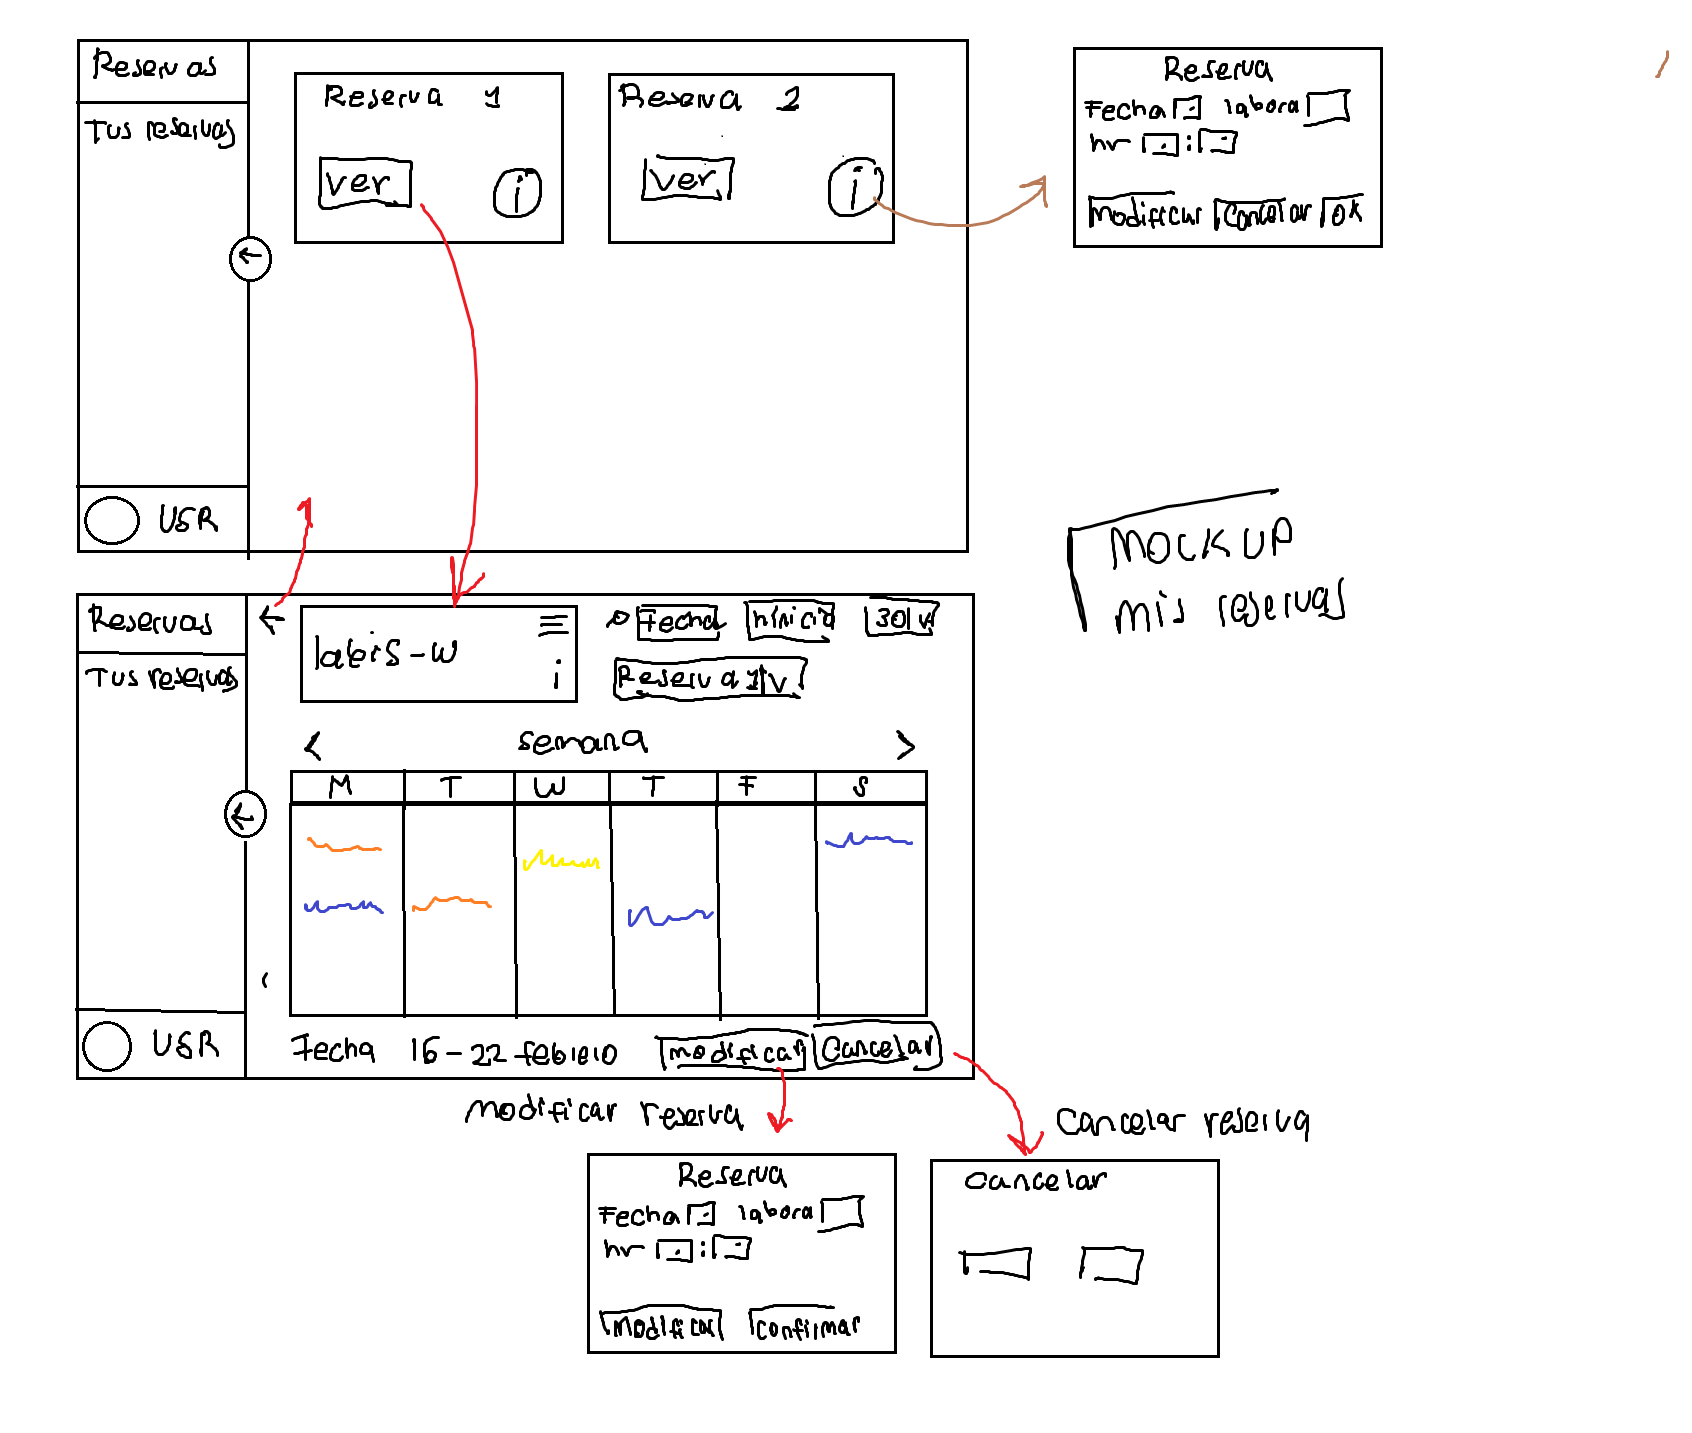 Reservas
Tus reservas
Reserva 1
ver
i
Reserva 2
ver
i
USR
Reserva
Fecha labora
hr :
Modificar Cancelar OK
MOCKUP
mis reservas
Reservas
Tus reservas
USR
labis-w
i
Fecha hinicio 30 v
Reserva 1 v
< semana >
M T W T F S
Fecha 16-22 febrero modificar Cancelar
modificar reserva
Cancelar reserva
Reserva
Fecha labora
hr :
Modificar confirmar
cancelar